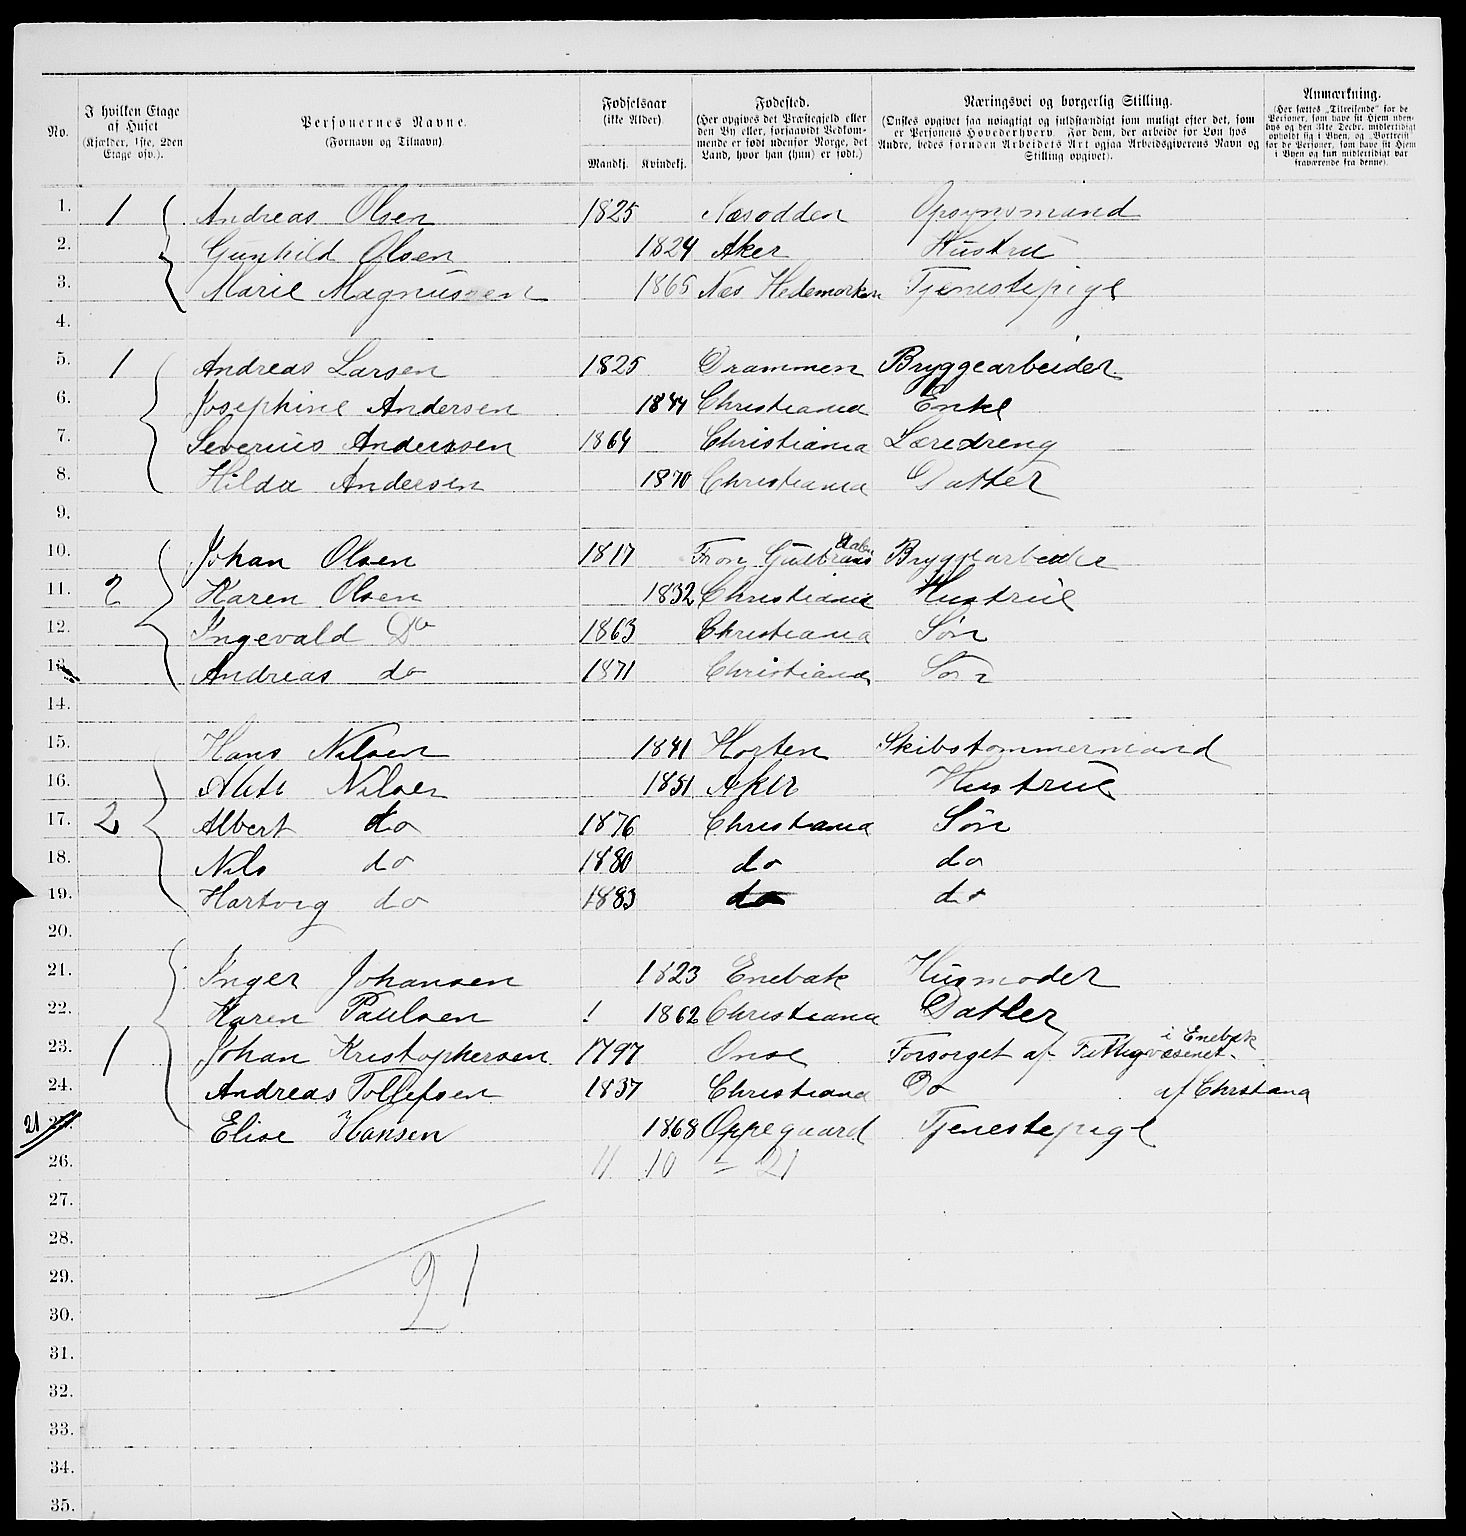 No. I hvilken Etage af Huset (Kjælder, 1ste, 2den Etage osv.). Personernes Navne. (Fornavn og Tilnavn). Fødselsaar (ikke Alder). Mandkj. Kvindekj. Fødested. (Her opgives det Præstegjeld eller den By eller, forsaavidt Vedkommende er født udenfor Norge, det Land, hvor han (hun) er født.) Næringsvei og borgerlig Stilling. (Ønskes opgivet saa nøiagtigt og fuldstændigt som muligt efter det, som er Personens Hovederhverv. For dem, der arbeide for Løn hos Andre, bedes foruden Arbeidets Art ogsaa Arbeidsgiverens Navn og Stilling opgivet). Anmærkning. (Her sættes „Tilreisende" for de Personer, som have sit Hjem udenbys og den 31te Decbr. midlertidigt opholdt sig i Byen, og „Bortreist" for de Personer, som have sit Hjem i Byen og kun midlertidigt var fraværende fra denne).
1. 1 Andreas Olsen 1825 Næsodden Opsynsmand
2. Gunhild Olsen 1824 Aker Hustru
3. Marie Magnussen 1865 Næs Hedemarken Tjenestepige
4.
5. 1 Andreas Larsen 1825 Drammen Bryggearbeider
6. Josephine Andersen 1844 Christiania Enke
7. Severius Anderssen 1864 Christiania Læredreng
8. Hilda Andersen 1870 Christiania Datter
9.
10. Johan Olsen 1817 Fron Gulbransdalen Bryggearbeider
11. 2 Karen Olsen 1832 Christiania Hustrue
12. Ingevald Do 1863 Christiania Søn
13. Andreas do 1871 Christiania Søn
14.
15. Hans Nilsen 1841 Horten Skibstømmermand
16. Nilsen 1851 Aker Hustrue
17. 2 Albert do 1876 Christiania Søn
18. Nils do 1880 do do
19. Hartvig do 1883 do do
20.
21. Inger Johansen 1823 Enebak Husmoder
22. Karen Paulsen ! 1862 Christiania Datter
23. 1 Johan Kristophersen 1797 Onsø Forsørget af Fattigvæsenet i Enebak
24. Andreas Tollefsen 1837 Christiania Do af Christiania
21 25. Elise Hansen 1868 Oppegaard Tjenestepige
26. 11 10 = 21
27.
28.
29. 21
30.
31.
32.
33.
34.
35.